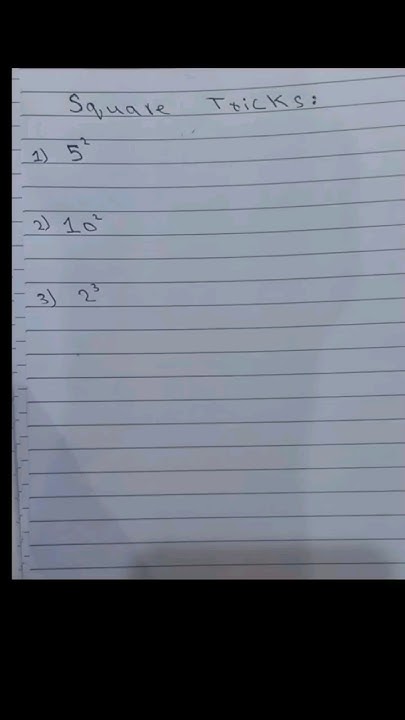 Square Tricks:
1) 5²
2) 10²
3) 2³